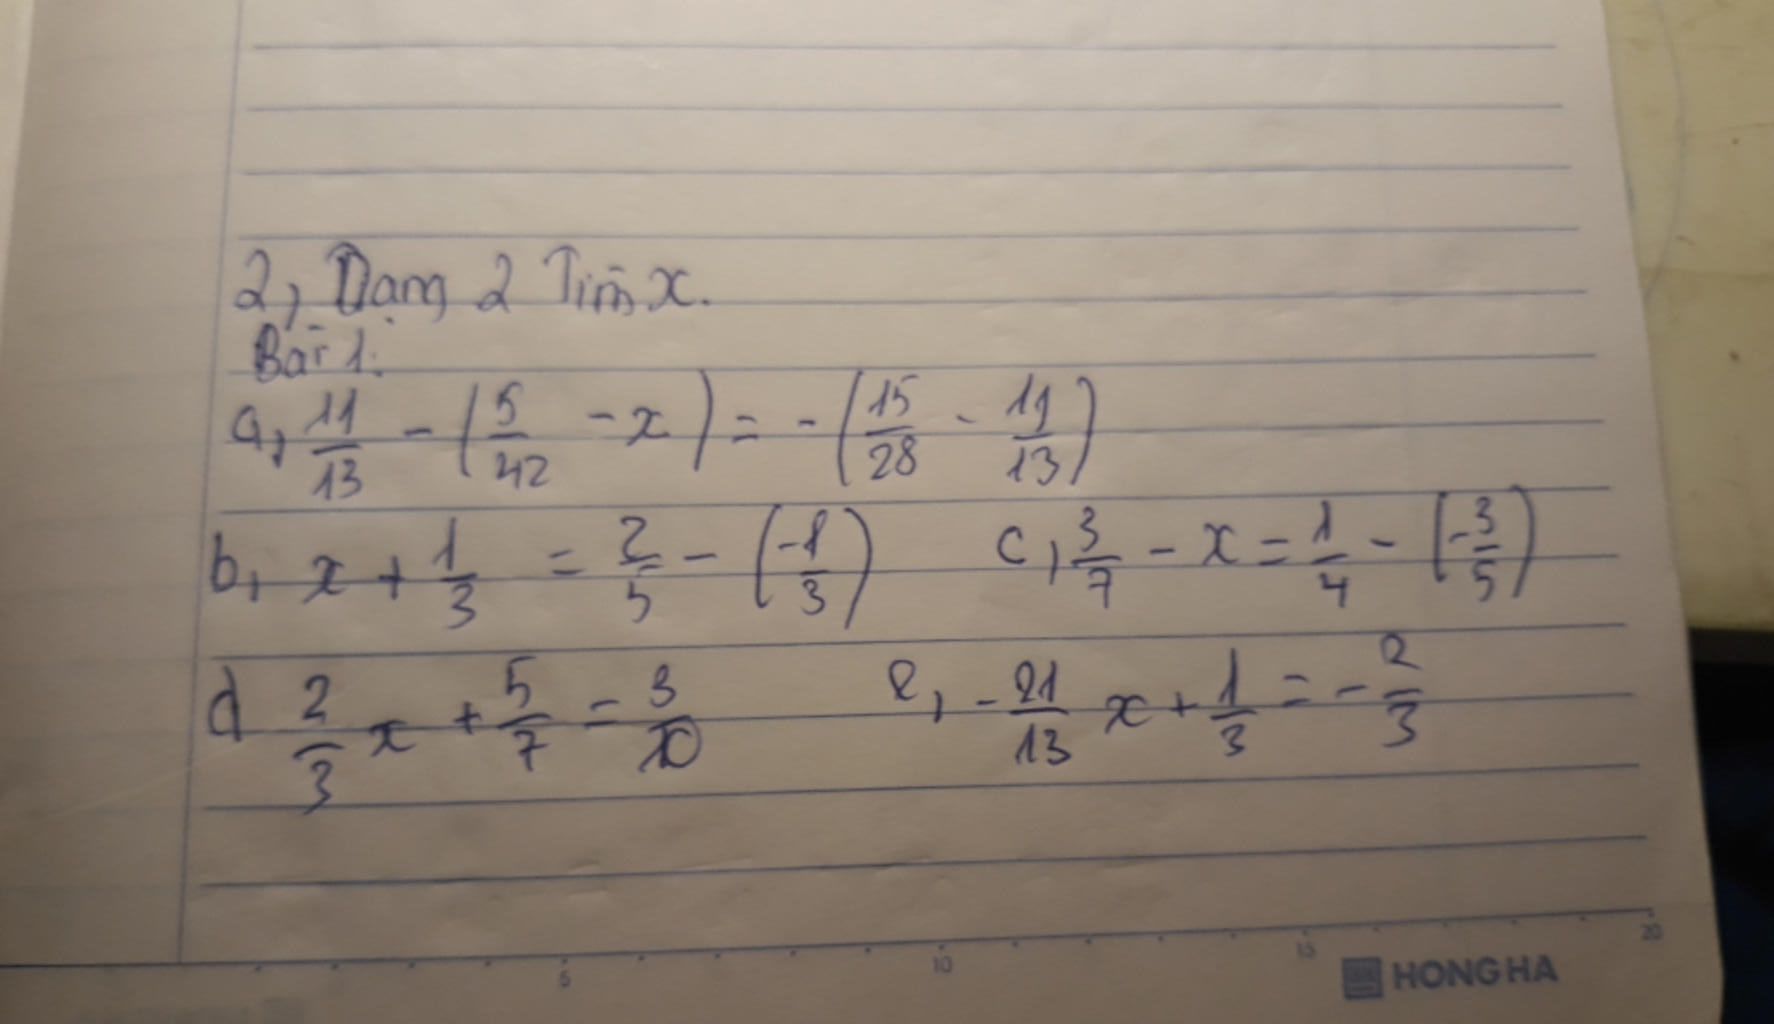 2, Dạng 2 Tìm x.
Bài 1:
a, 11/13 - (5/42 - x) = -(15/28 - 11/13)
b, x + 1/3 = 2/5 - (-1/3) c, 3/7 - x = 1/4 - (-3/5)
d 2/3 x + 5/7 = 3/10 e, -21/13 x + 1/3 = -2/3
5 10 15 20
HONG HA